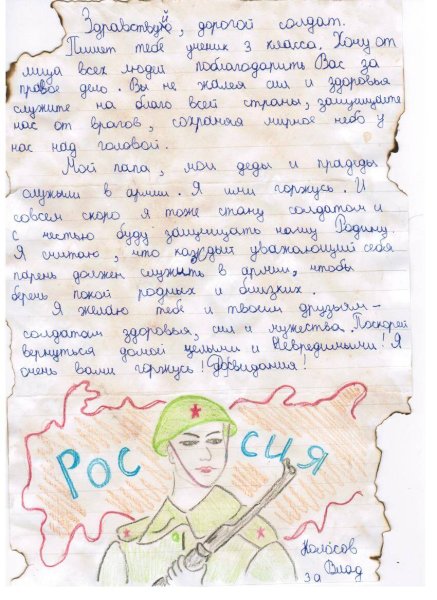 Здравствуй, дорогой солдат.
Пишет тебе ученик 3 класса. Хочу от
лица всех людей поблагодарить Вас за
правое дело. Вы не жалея сил и здоровья
служите на благо всей страны, защищаете
нас от врагов, сохраняя мирное небо у
нас над головой.
Мой папа, мои деды и прадеды
служили в армии. Я ими горжусь. И
совсем скоро я тоже стану солдатом и
с честью буду защищать нашу Родину.
Я считаю, что каждый уважающий себя
парень должен служить в армии, чтобы
беречь покой родных и близких.
Я желаю тебе и твоим друзьям-
солдатам здоровья, сил и мужества. Поскорей
вернуться домой целыми и невредимыми! Я
очень вами горжусь! Досвидания!
Россия
Колосов
Влад
3а